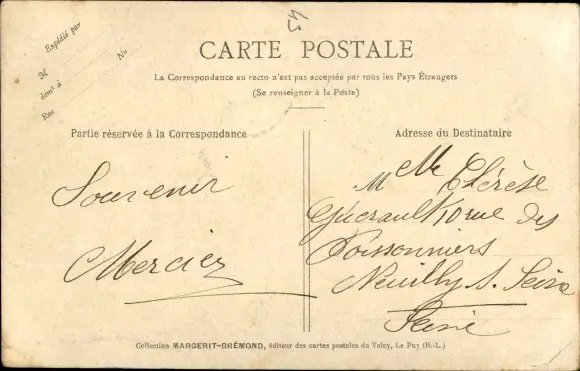 43
Expédié par
M
demt à
Rue
No
CARTE POSTALE
La Correspondance au recto n'est pas acceptée par tous les Pays Étrangers
(Se renseigner à la Poste)
Partie réservée à la Correspondance
Adresse du Destinataire
Souvenir
Mercier
M Melle Thérèse
Guerault 10 rue des
Poissonniers
Neuilly s. Seine
Seine
Collection MARGERIT-BRÉMOND, éditeur des cartes postales du Velay, Le Puy (H.-L.)